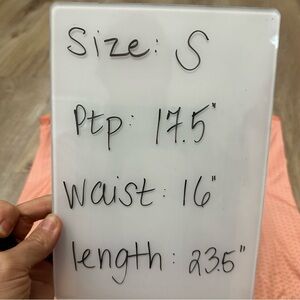 Size: S
Ptp: 17.5"
Waist: 16"
length: 23.5"